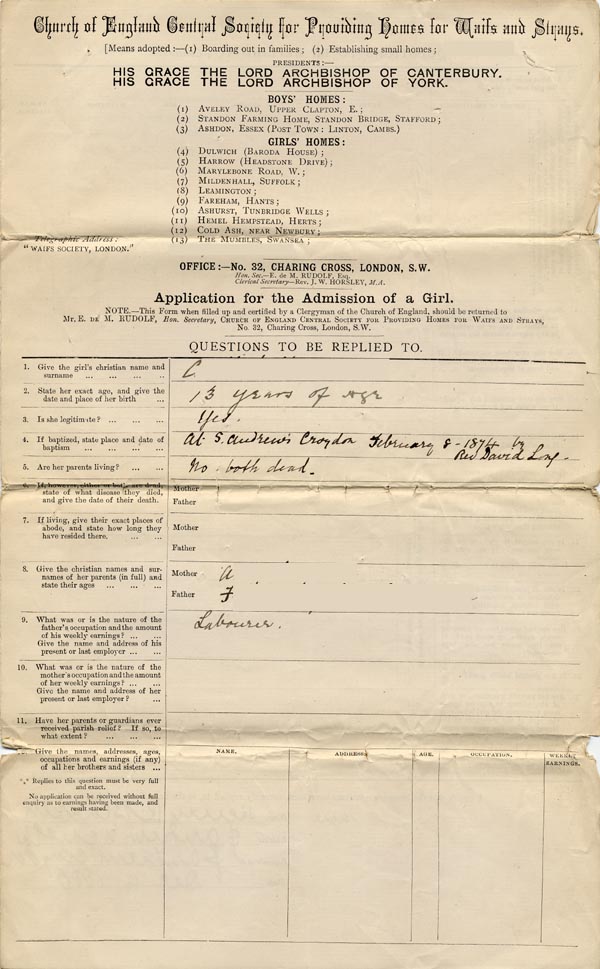 Church of England Central Society for Providing Homes for Waifs and Strays.
[Means adopted:—(1) Boarding out in families; (2) Establishing small homes;
PRESIDENTS:—
HIS GRACE THE LORD ARCHBISHOP OF CANTERBURY.
HIS GRACE THE LORD ARCHBISHOP OF YORK.
BOYS' HOMES:
(1) AVELEY ROAD, UPPER CLAPTON, E.;
(2) STANDON FARMING HOME, STANDON BRIDGE, STAFFORD;
(3) ASHDON, ESSEX (POST TOWN: LINTON, CAMBS.)
GIRLS' HOMES:
(4) DULWICH (BARODA HOUSE);
(5) HARROW (HEADSTONE DRIVE);
(6) MARYLEBONE ROAD, W.;
(7) MILDENHALL, SUFFOLK;
(8) LEAMINGTON;
(9) FAREHAM, HANTS;
(10) ASHURST, TUNBRIDGE WELLS;
(11) HEMEL HEMPSTEAD, HERTS;
(12) COLD ASH, NEAR NEWBURY;
(13) THE MUMBLES, SWANSEA;
Telegraphic Address:
"WAIFS SOCIETY, LONDON."
OFFICE:—No. 32, CHARING CROSS, LONDON, S.W.
Hon. Sec.—E. de M. RUDOLF, Esq.
Clerical Secretary—Rev. J. W. HORSLEY, M.A.
Application for the Admission of a Girl.
NOTE.—This Form when filled up and certified by a Clergyman of the Church of England, should be returned to
Mr. E. DE M. RUDOLF, Hon. Secretary, CHURCH OF ENGLAND CENTRAL SOCIETY FOR PROVIDING HOMES FOR WAIFS AND STRAYS,
No. 32, Charing Cross, London, S.W.
QUESTIONS TO BE REPLIED TO.
1. Give the girl's christian name and
surname ... ... ... ..
C
2. State her exact age, and give the
date and place of her birth ...
13 years of age
3. Is she legitimate? ... ... ...
Yes.
4. If baptized, state place and date of
baptism ... ... ... ...
At S. Andrews Croydon February 8 - 1874 by
Rev David Long -
5. Are her parents living? ... ...
No. both dead.
6. If, however, either or both are dead,
state of what disease they died,
and give the date of their death.
Mother
Father
7. If living, give their exact places of
abode, and state how long they
have resided there. ... ...
Mother
Father
8. Give the christian names and sur-
names of her parents (in full) and
state their ages ... ... ...
Mother A
Father F
9. What was or is the nature of the
father's occupation and the amount
of his weekly earnings? ... ...
Give the name and address of his
present or last employer ... ...
Labourer.
10. What was or is the nature of the
mother's occupation and the amount
of her weekly earnings? ... ...
Give the name and address of her
present or last employer? ...
11. Have her parents or guardians ever
received parish relief? If so, to
what extent? ... ... ...
Give the names, addresses, ages,
occupations and earnings (if any)
of all her brothers and sisters ...
*** Replies to this question must be very full
and exact.
No application can be received without full
enquiry as to earnings having been made, and
result stated.
NAME. ADDRESS. AGE. OCCUPATION. WEEKLY
EARNINGS.